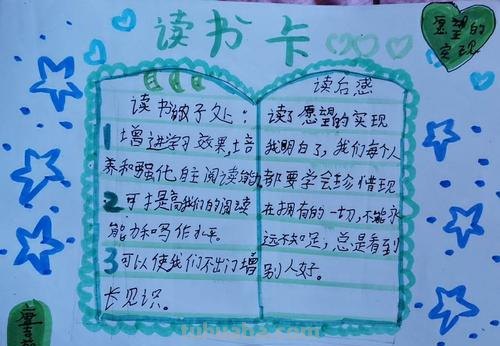 读书卡
愿望的
实现
读书的好处：
1 增进学习效果,培
养和强化自主阅读的
2 可提高我们的阅读
能力和写作水平。
3 可以使我们不出门增
长见识。
读后感
读了愿望的实现
我明白了，我们每个人
都要学会珍惜现
在拥有的一切,不能永
远不知足，总是看到
别人好。